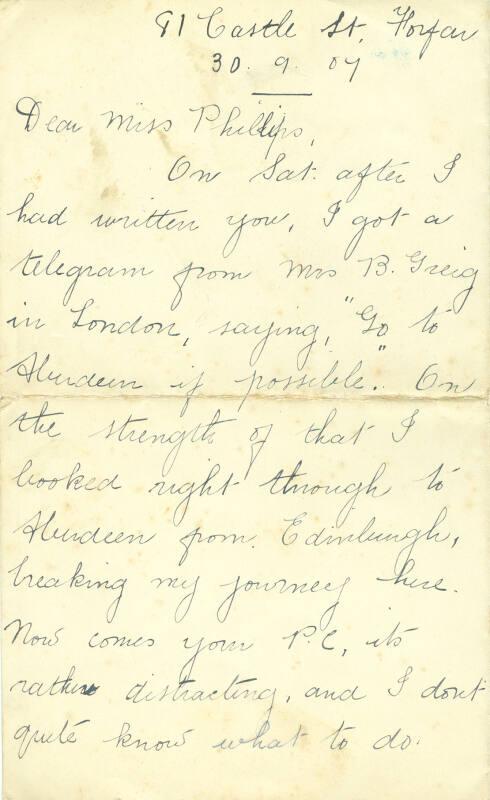 81 Castle St, Forfar
30. 9. 07
Dear Miss Phillips,
On Sat. after I
had written you, I got a
telegram from Mrs B. Greig
in London, saying, "Go to
Aberdeen if possible." On
the strength of that I
booked right through to
Aberdeen from Edinburgh,
breaking my journey here.
Now comes your P.C, its
rather distracting, and I don't
quite know what to do.